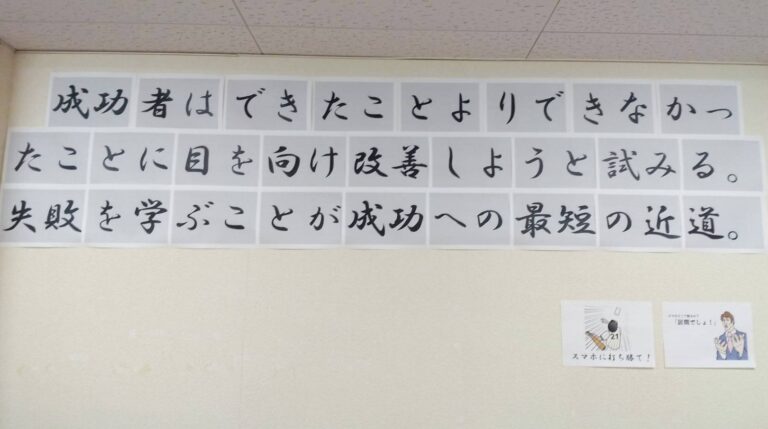 成功者はできたことよりできなかっ
たことに目を向け改善しようと試みる。
失敗を学ぶことが成功への最短の近道。
21
スマホに打ち勝て！
「習慣でしょ！」